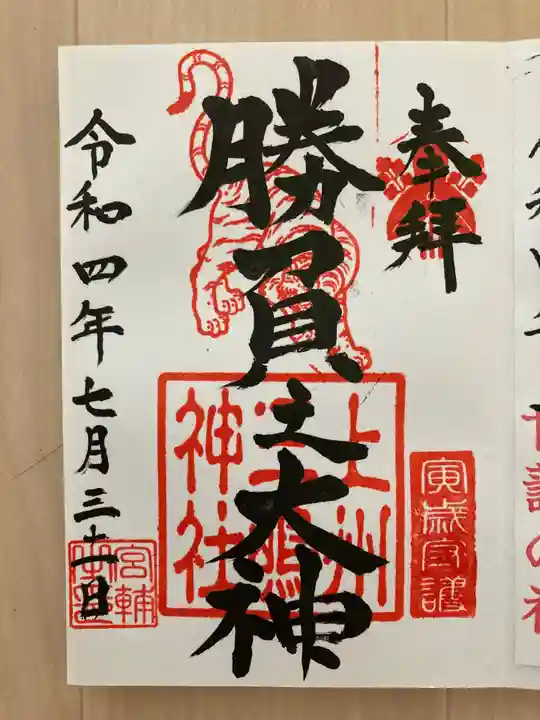 奉拝
勝負之大神
上州
神社
寅歳守護
令和四年七月三十一日
宮輔